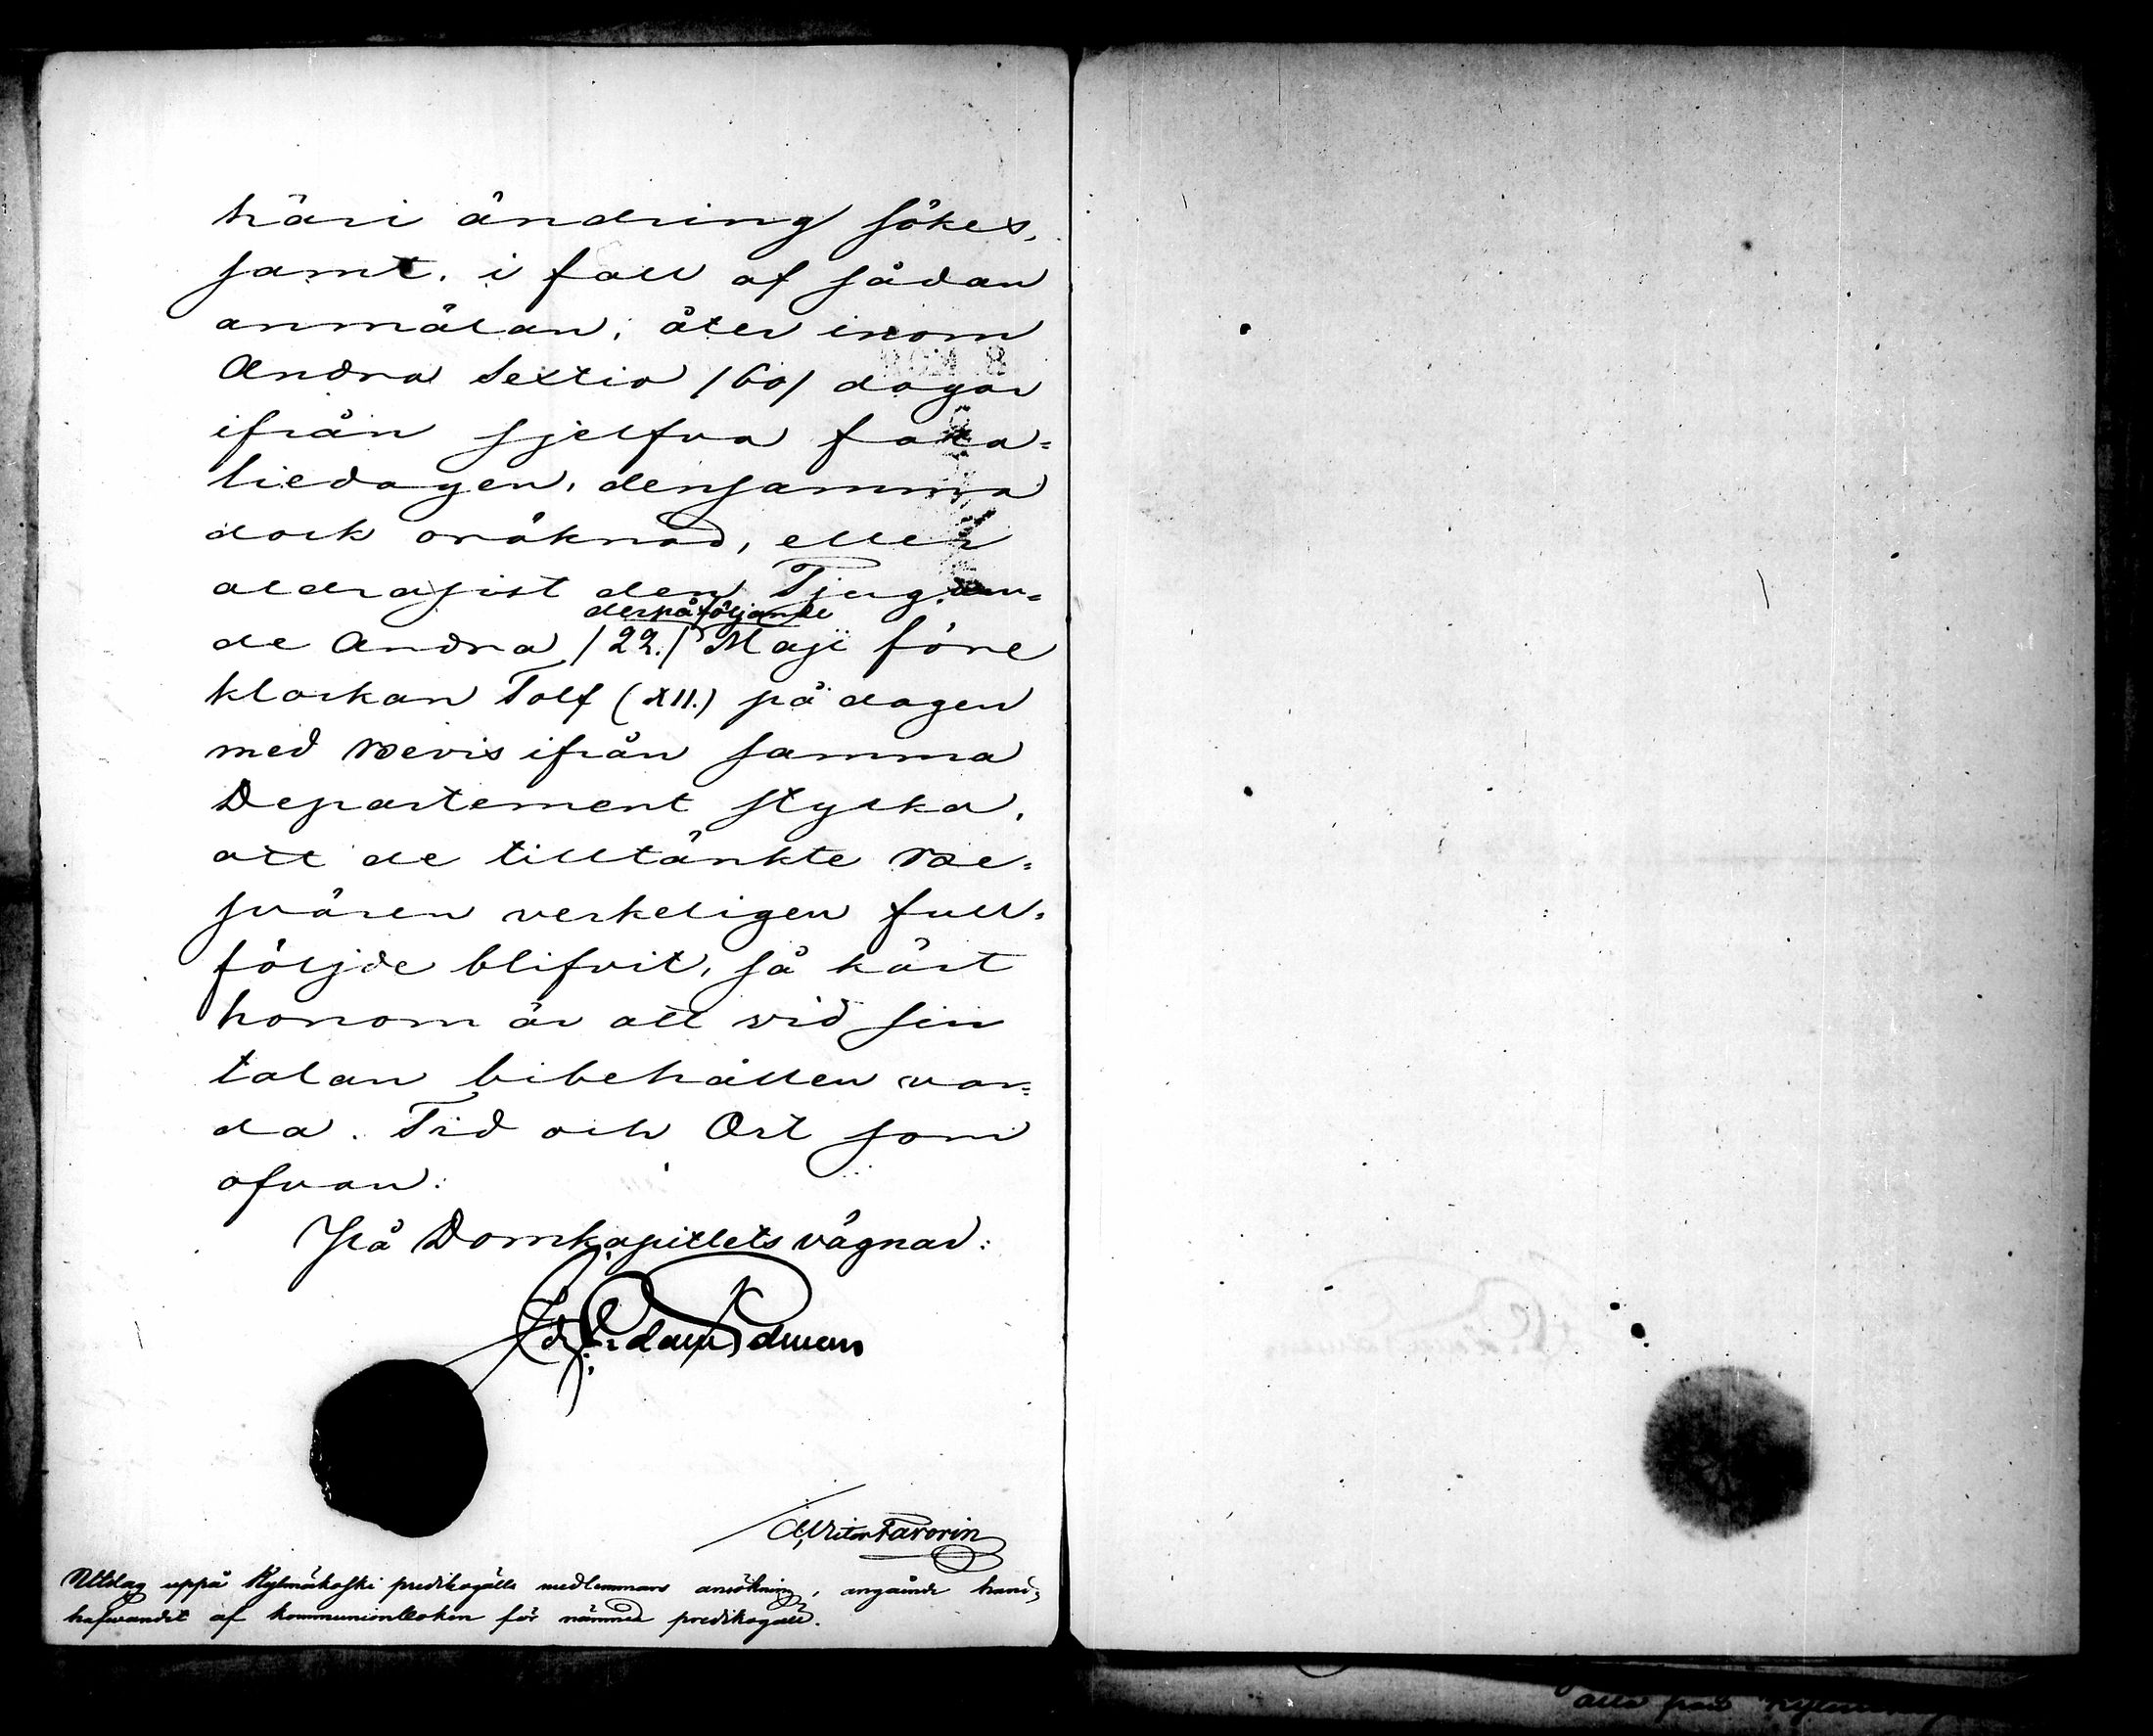 häri ändring sökes,
samt, i fall af sådan
anmälan, åter inom
Andra Sextio /60/ dagar
ifrån sjelfva fata=
liedagen, densamma
dock oräknad, eller
aldrasist den Tjugon=
derpåföljande
de Andra /22./ Maji före
klockan Tolf (XII.) på dagen
med Bevis ifrån samma
Departement styrka,
att de tilltänkte Be=
svären verkeligen full=
följde blifvit, så kärt
honom är att vid sin
talan bibehållen var=
da. Tid och Ort som
ofvan.
På Domkapitlets vägnar:
Widman
Victor Favorin
Utslag uppå Kylmäkoski predikogälls medlemmars ansökning, angående hand=
hafvandet af kommunionboken för nämnda predikogäll.
från